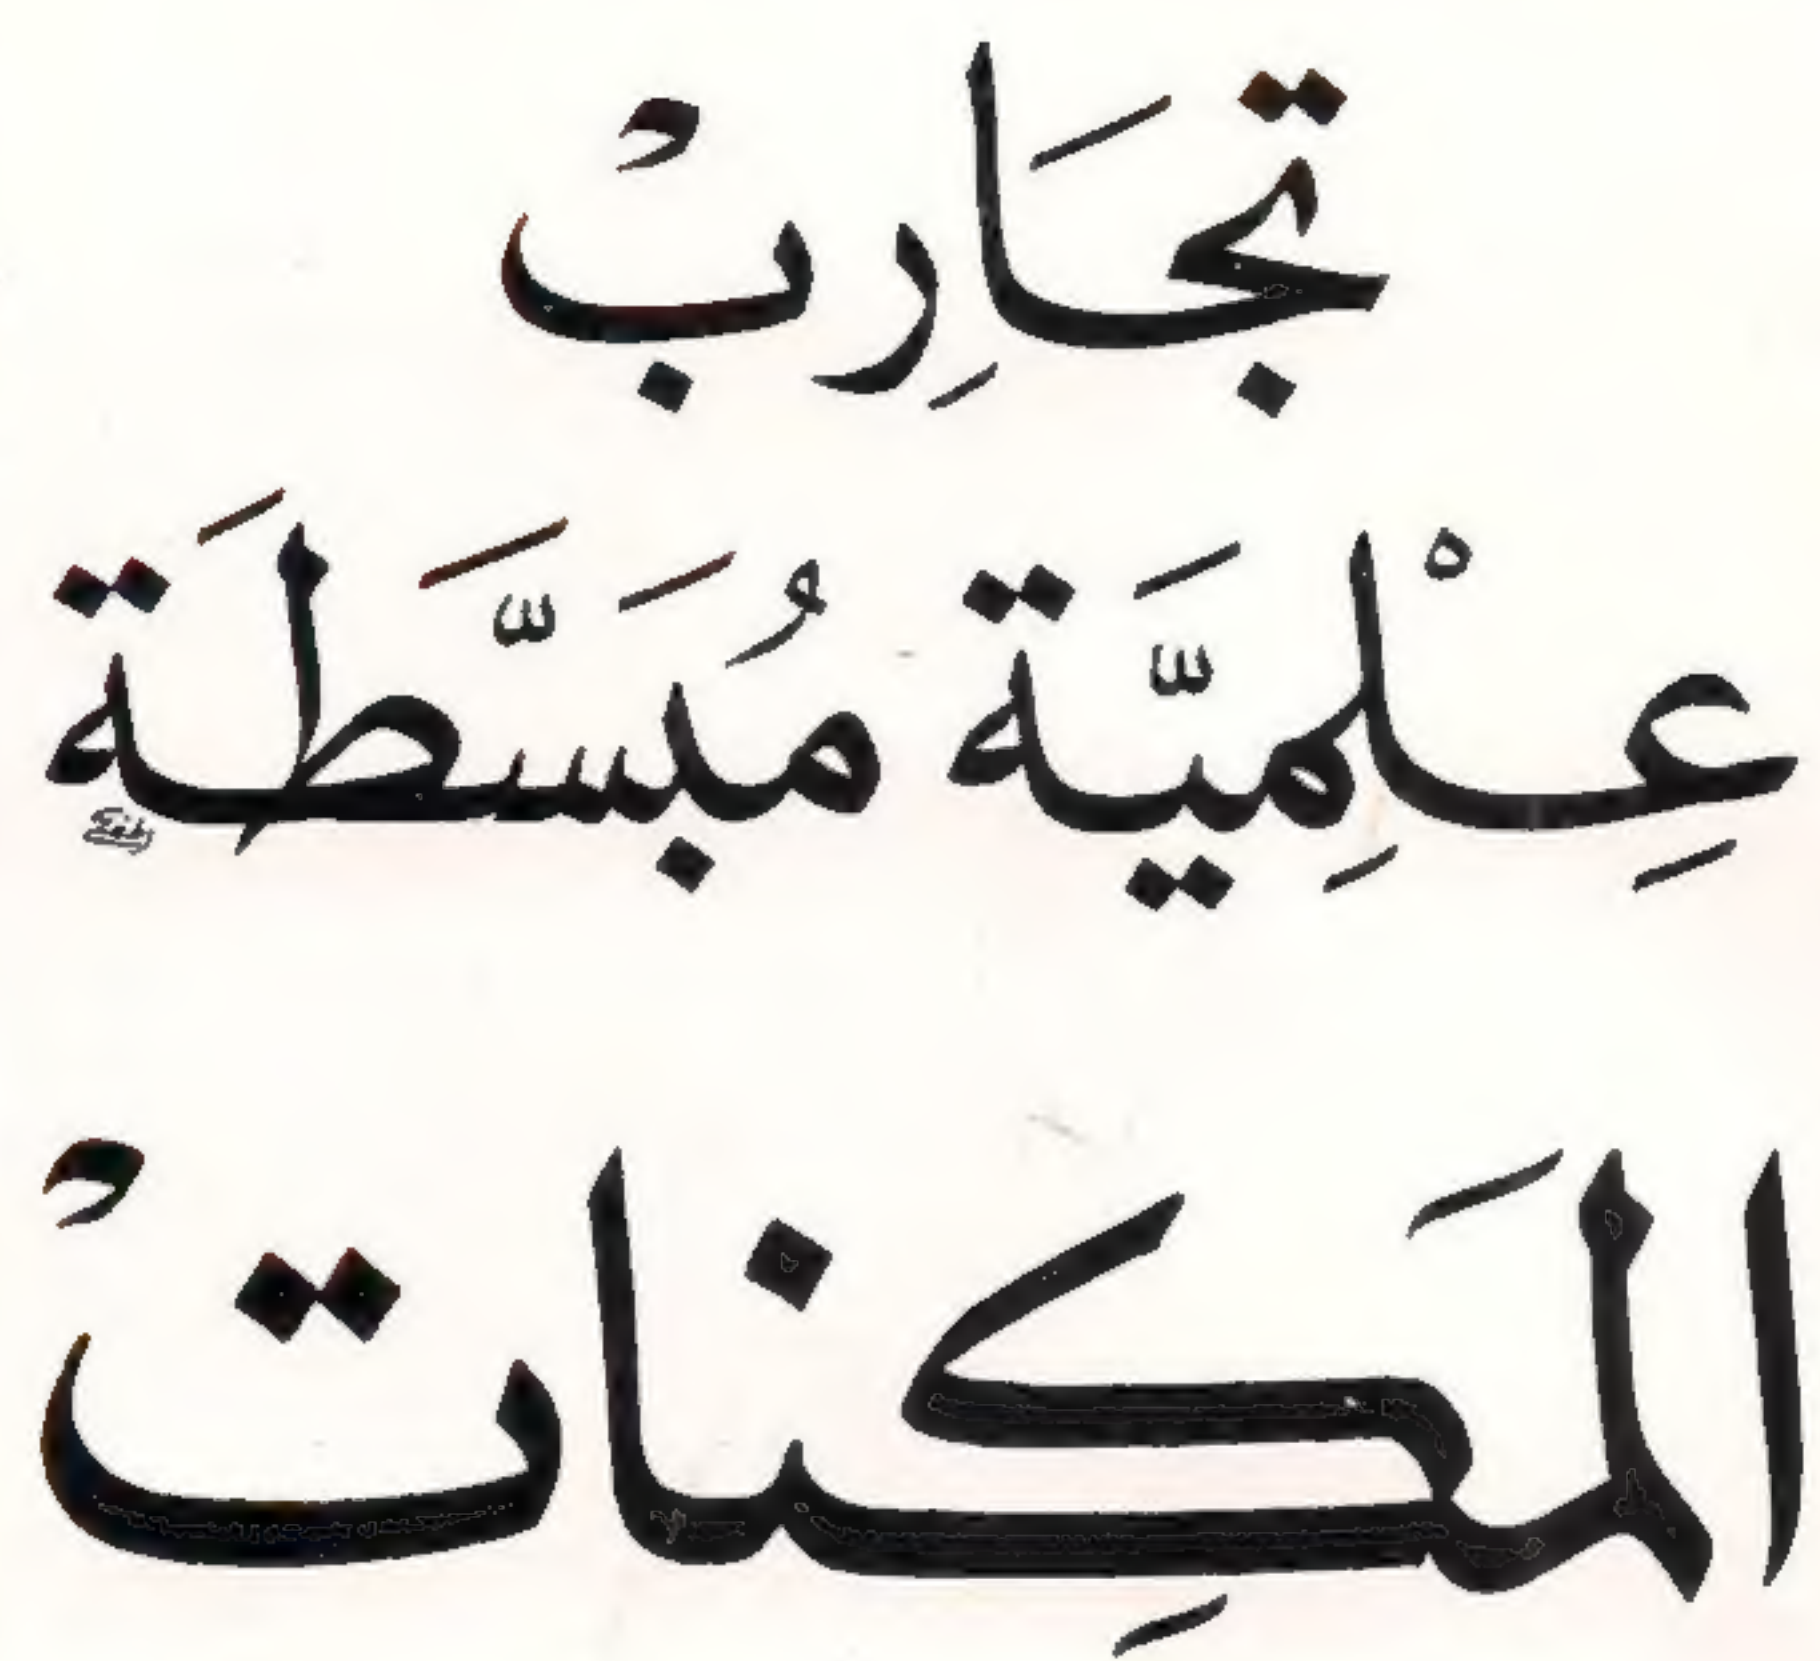 تجَارِبْ
عِلْمِيَّة مُبَسَّطَة
المَكِناتْ